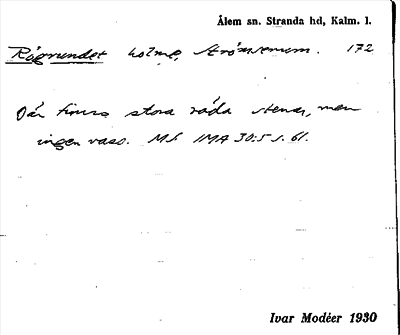 Ålem sn. Stranda hd, Kalm. l.
Rögrundet holme, Strömsrum. 172
Där finns stora röda stenar, men
ingen vass. Ms. IMA 30:5 s. 61.
Ivar Modéer 1930